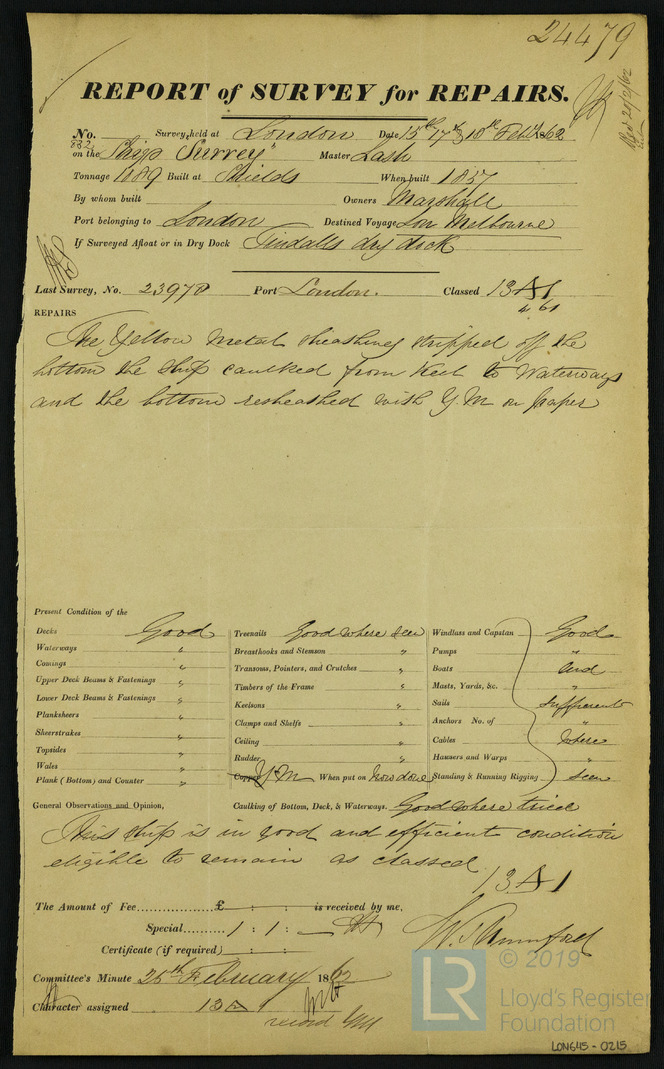 24479
REPORT of SURVEY for REPAIRS.
No. Survey, held at London Date 15th 17th & 18th Feby 1862
882 on the Ship "Surrey" Master Lash
Tonnage 1089 Built at Shields When built 1857
By whom built Owners Marshall
Port belonging to London Destined Voyage Lon Melbourne
If Surveyed Afloat or in Dry Dock Tindalls dry dock
Last Survey, No. 23970 Port London. Classed 13 A 1
4 61
REPAIRS
The Yellow Metal sheathing stripped off the
bottom the ship caulked from Keel to Waterways
and the bottom resheathed with Y.M on paper
Present Condition of the
Decks Good Treenails Good where seen Windlass and Capstan Good
Waterways " Breasthooks and Stemson " Pumps "
Comings " Transoms, Pointers, and Crutches " Boats And
Upper Deck Beams & Fastenings " Timbers of the Frame " Masts, Yards, &c. "
Lower Deck Beams & Fastenings " Keelsons " Sails Sufficient
Planksheers " Clamps and Shelfs " Anchors No. of "
Sheerstrakes " Ceiling " Cables where
Topsides " Rudder " Hawsers and Warps "
Wales "
Plank (Bottom) and Counter " Copper Y M When put on Now done Standing & Running Rigging seen
General Observations and Opinion, Caulking of Bottom, Deck, & Waterways. Good where tried
This ship is in good and efficient condition
eligible to remain as classed
13 A 1
The Amount of Fee £ : : is received by me,
Special 1 : 1 : —
Certificate (if required) : :
Committee's Minute 25th February 1862
Character assigned 13 A 1
record YM
LR © 2019
Lloyd's Register
Foundation
LON645-0215